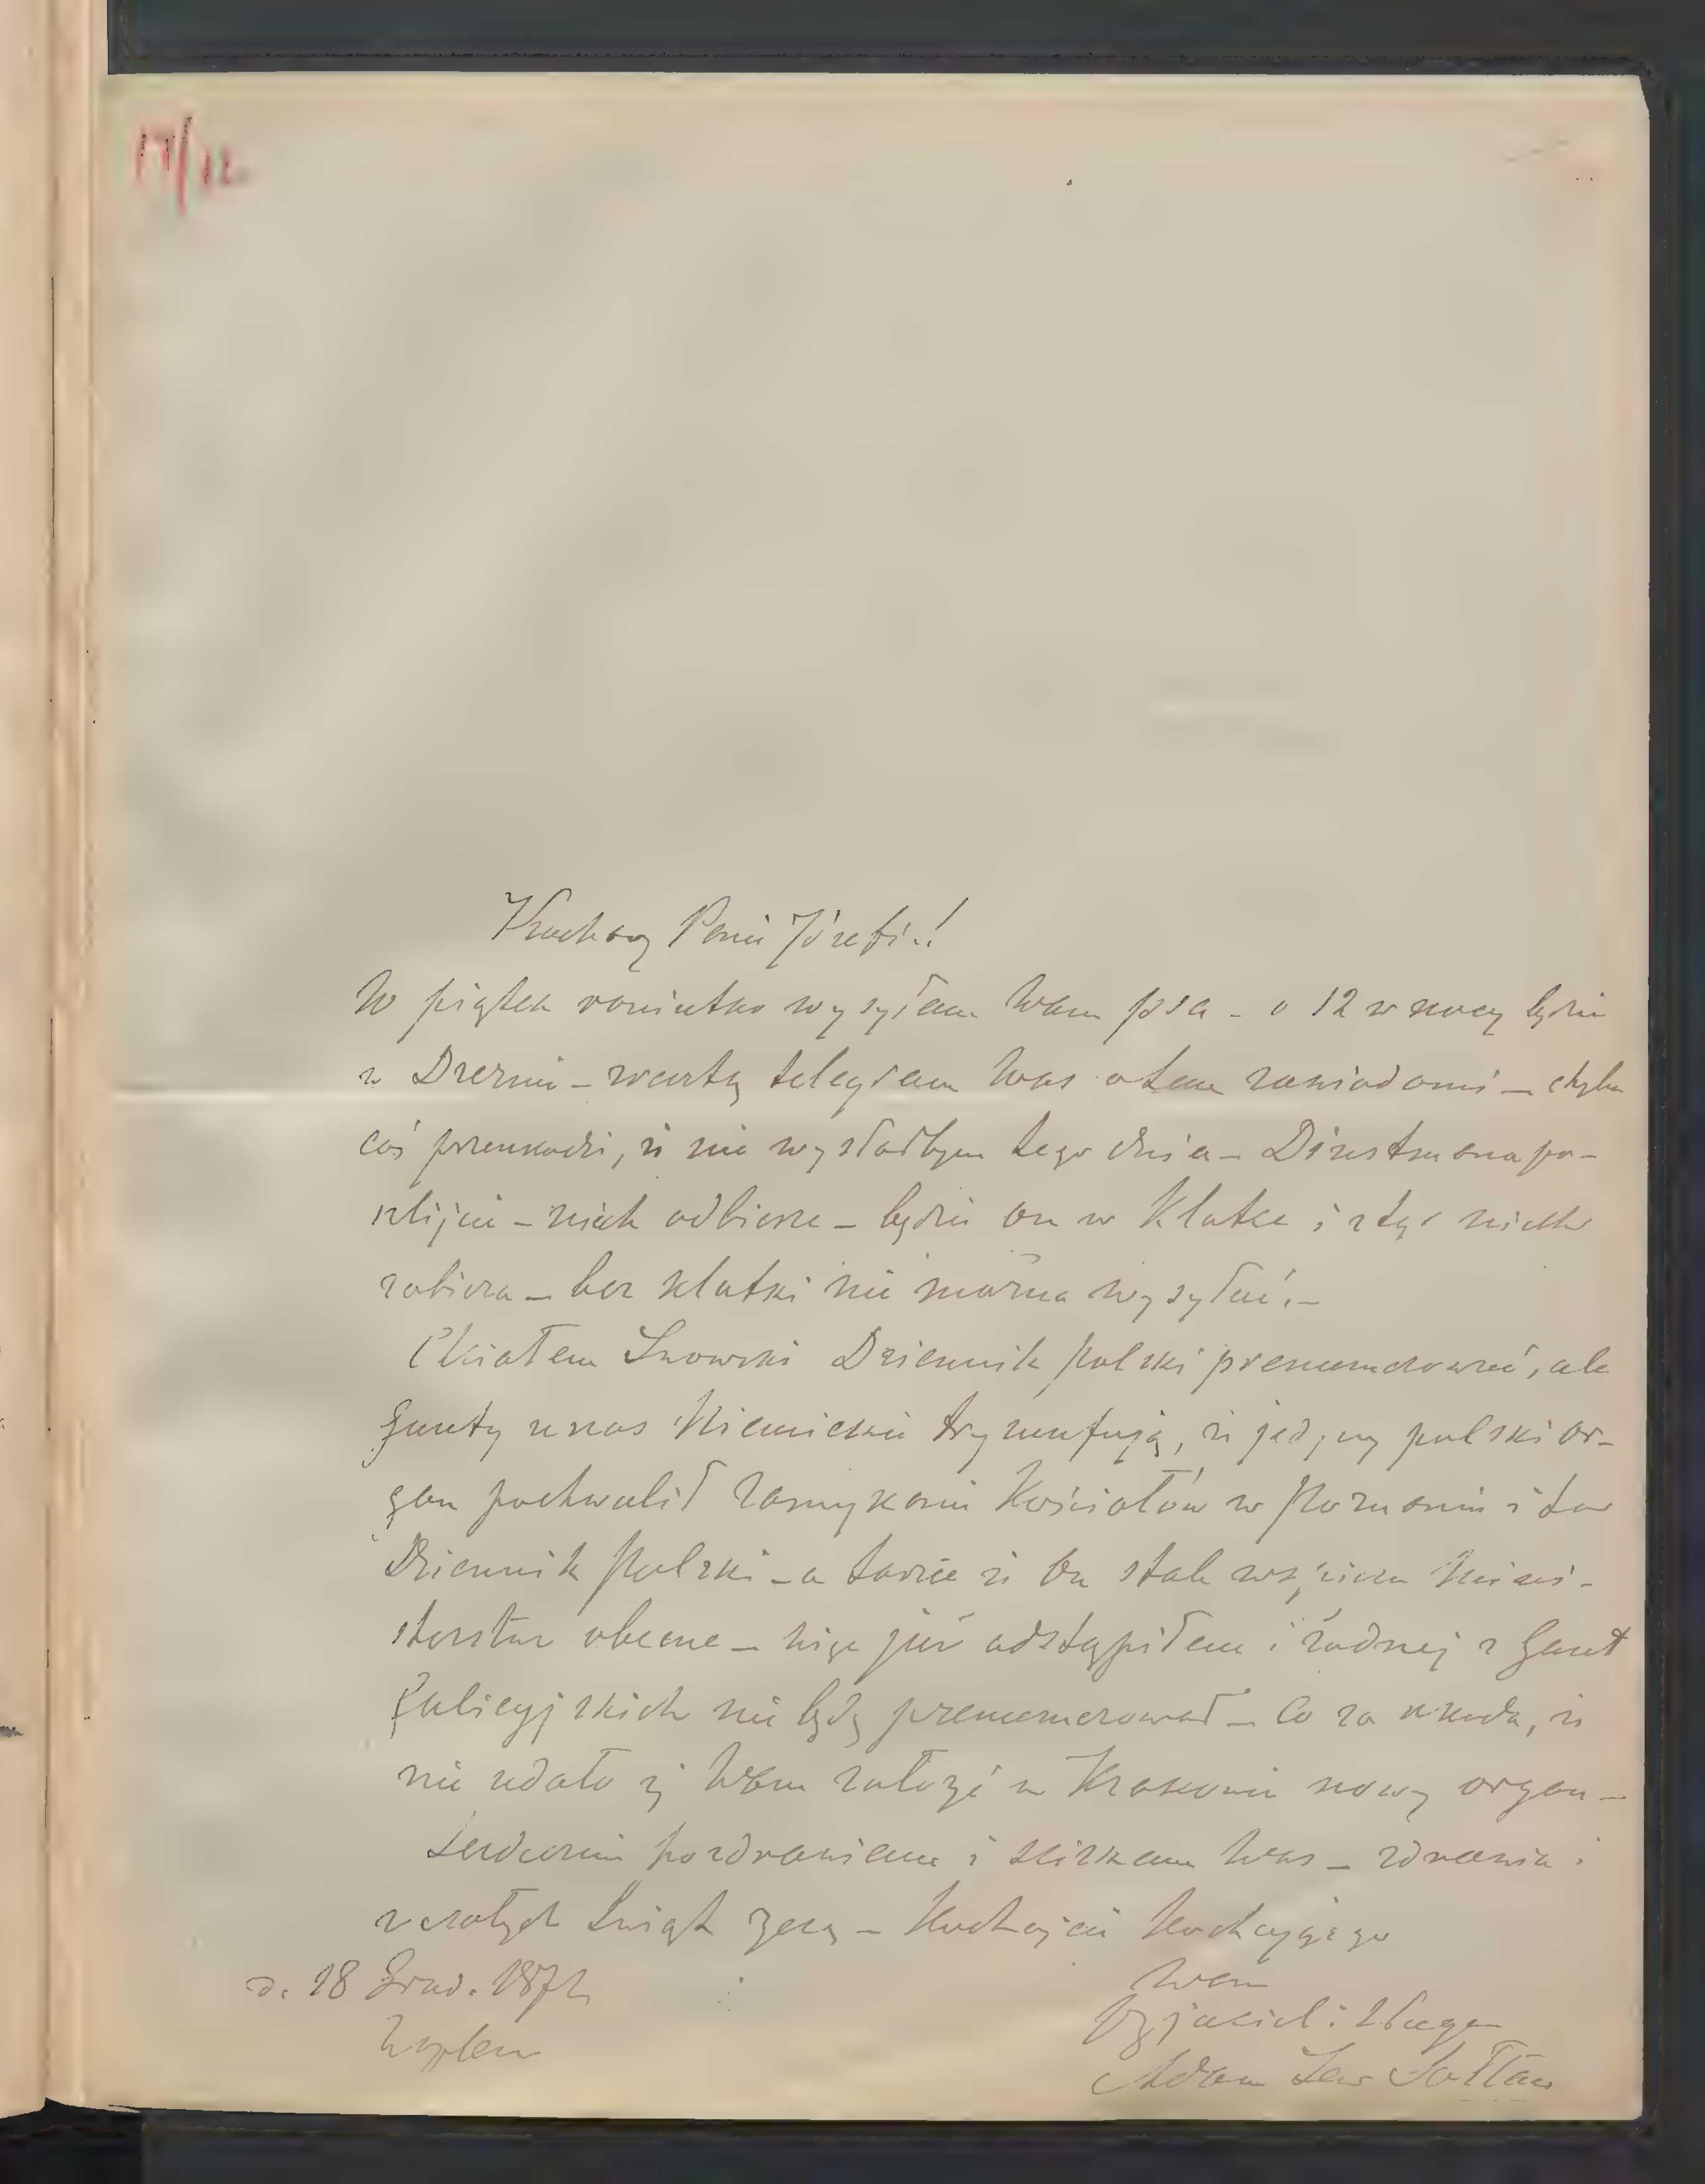 17/12.
Kochany Panie Józefie!
W piątek raniutko wysyłam Wam psa – o 12 w nocy będzie
w Dreznie – zwarty telegram Was o tem zawiadomi – chyba
coś przeszkodzi, iż nie wysłałbym tego dnia – Dinstmana po-
szlijcie – niech odbierze – będzie on w Klatce i z tąd niech
zabiera – bez klatki nie można wysyłać. –
Chciałem Lwowski Dziennik polski prenumerować, ale
gazety u nas Niemieckie tryumfują, iż jedyny polski or-
gan pochwalił zamykanie Kościołów w Poznaniu i to
Dziennik Polski – a także iż on stale wspiera Mini-
sterstwo obecne – więc już odstąpiłem i żadnej z Gazet
Galicyjskich nie będę prenumerował – Co za szkoda, iż
nie udało się Wam założyć w Krakowie nowy organ –
Serdecznie pozdrawiam i ściskam Was – zdrowia i
wesołych Świąt życzę – Kochajcie Kochającego
Wam
Przyjaciel i Sługa
Adam Lew Sołtan
d. 18 Grud. 1872